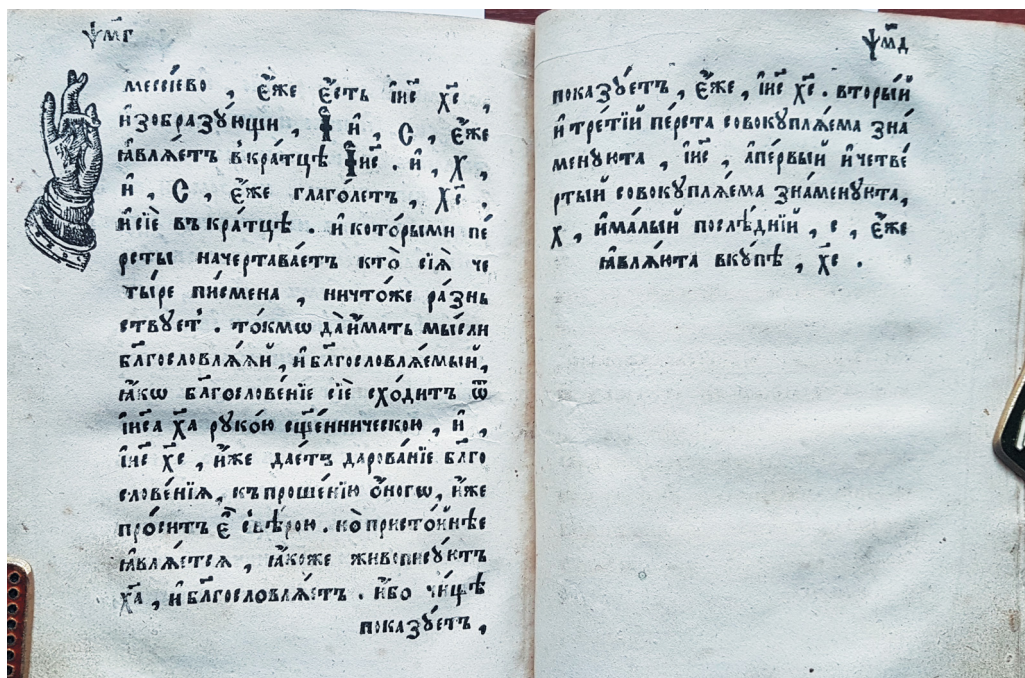 ѱм҃г
мессі́ево , є҆́же є҆́сть і҆и҃с хр҇е ,
и҆зобразꙋ́ющи , І҆ и҆ , С , є҆́же
ꙗ҆влѧ́етъ вкра́тцѣ І҆и҃с . и҆ , Х ,
и҆ , С , є҆́же глаго́летъ , х҃с .
и҆сїѐ въкра́тцѣ . и҆кото́рыми пе́
рсты начертава́етъ кто̀ сїѧ̀ че
ты́ре пи́смена , ничто́же ра́знь
ствꙋетъ . то́кмѡ да̀и҆́мать мы́сли
бл҃гословлѧ́ѧй , и҆бл҃гословлѧ́емый ,
ꙗ҆́кѡ бл҃гослове́нїе сїѐ схо́дитъ ѿ
і҆и҃са х҃а рꙋко́ю сщ҃е́нническою , и҆ ,
і҆и҃с х҃с , и҆́же дае́тъ дарова́нїе бл҃го
слове́нїѧ , къпроше́нїю о҆́ногѡ , и҆́же
про́ситъ є҆̀ свѣ́рою . ко̀присто́йнѣе
ꙗ҆влѧ́етсѧ , ꙗ҆́коже живописꙋ́ютъ
х҃а , и҆бл҃гословлѧ́етъ . и҆́бо чи́щѣ
показꙋ́етъ ,
ѱм҃д
показꙋ́етъ , є҆́же , і҆и҃с х҃с . вторы́й
и҆тре́тїй пе́рста совокꙋплѧ́ема зна́
менꙋюта , і҆и҃с , а҆пе́рвый и҆четве́
ртый совокꙋплѧ́ема зна́менꙋюта ,
Х , и҆ма́лый послѣ́днїй , с , є҆́же
ꙗ҆влѧ́юта вкꙋ́пѣ , х҃с .